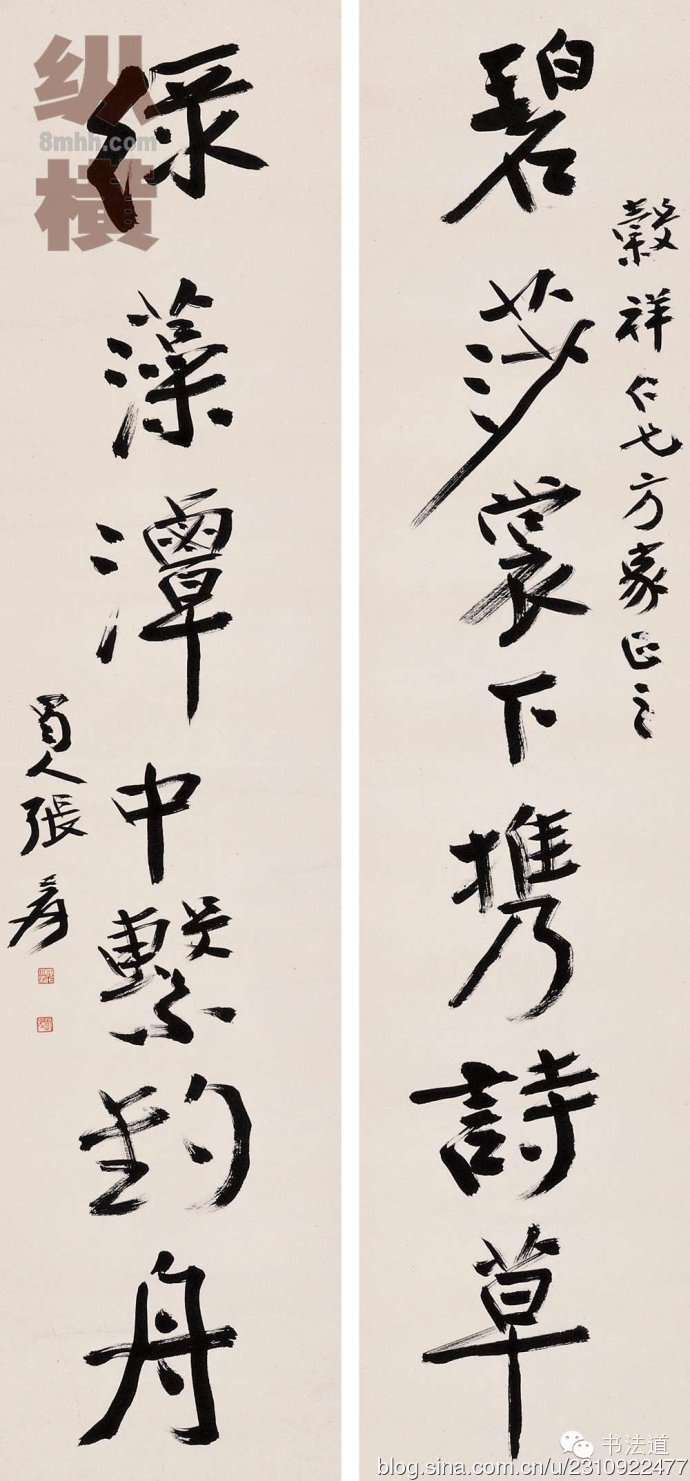 穀祥仁兄方家正之
碧莎裳下携詩草
綠藻潭中繫釣舟
蜀人張爰
纵
8mhh.com
橫
书法道
blog.sina.com.cn/u/2310922477